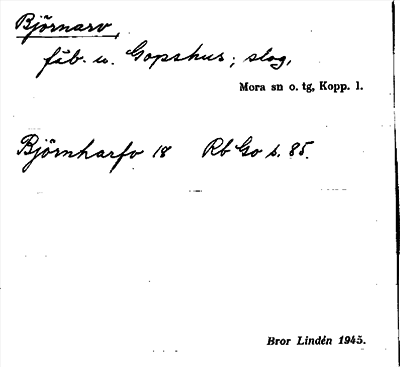 Björnarv,
fäb. u. Gopshus; slog,
Mora sn o. tg, Kopp. l.
Björnharfv 18 Rb Go s. 85.
Bror Lindén 1945.